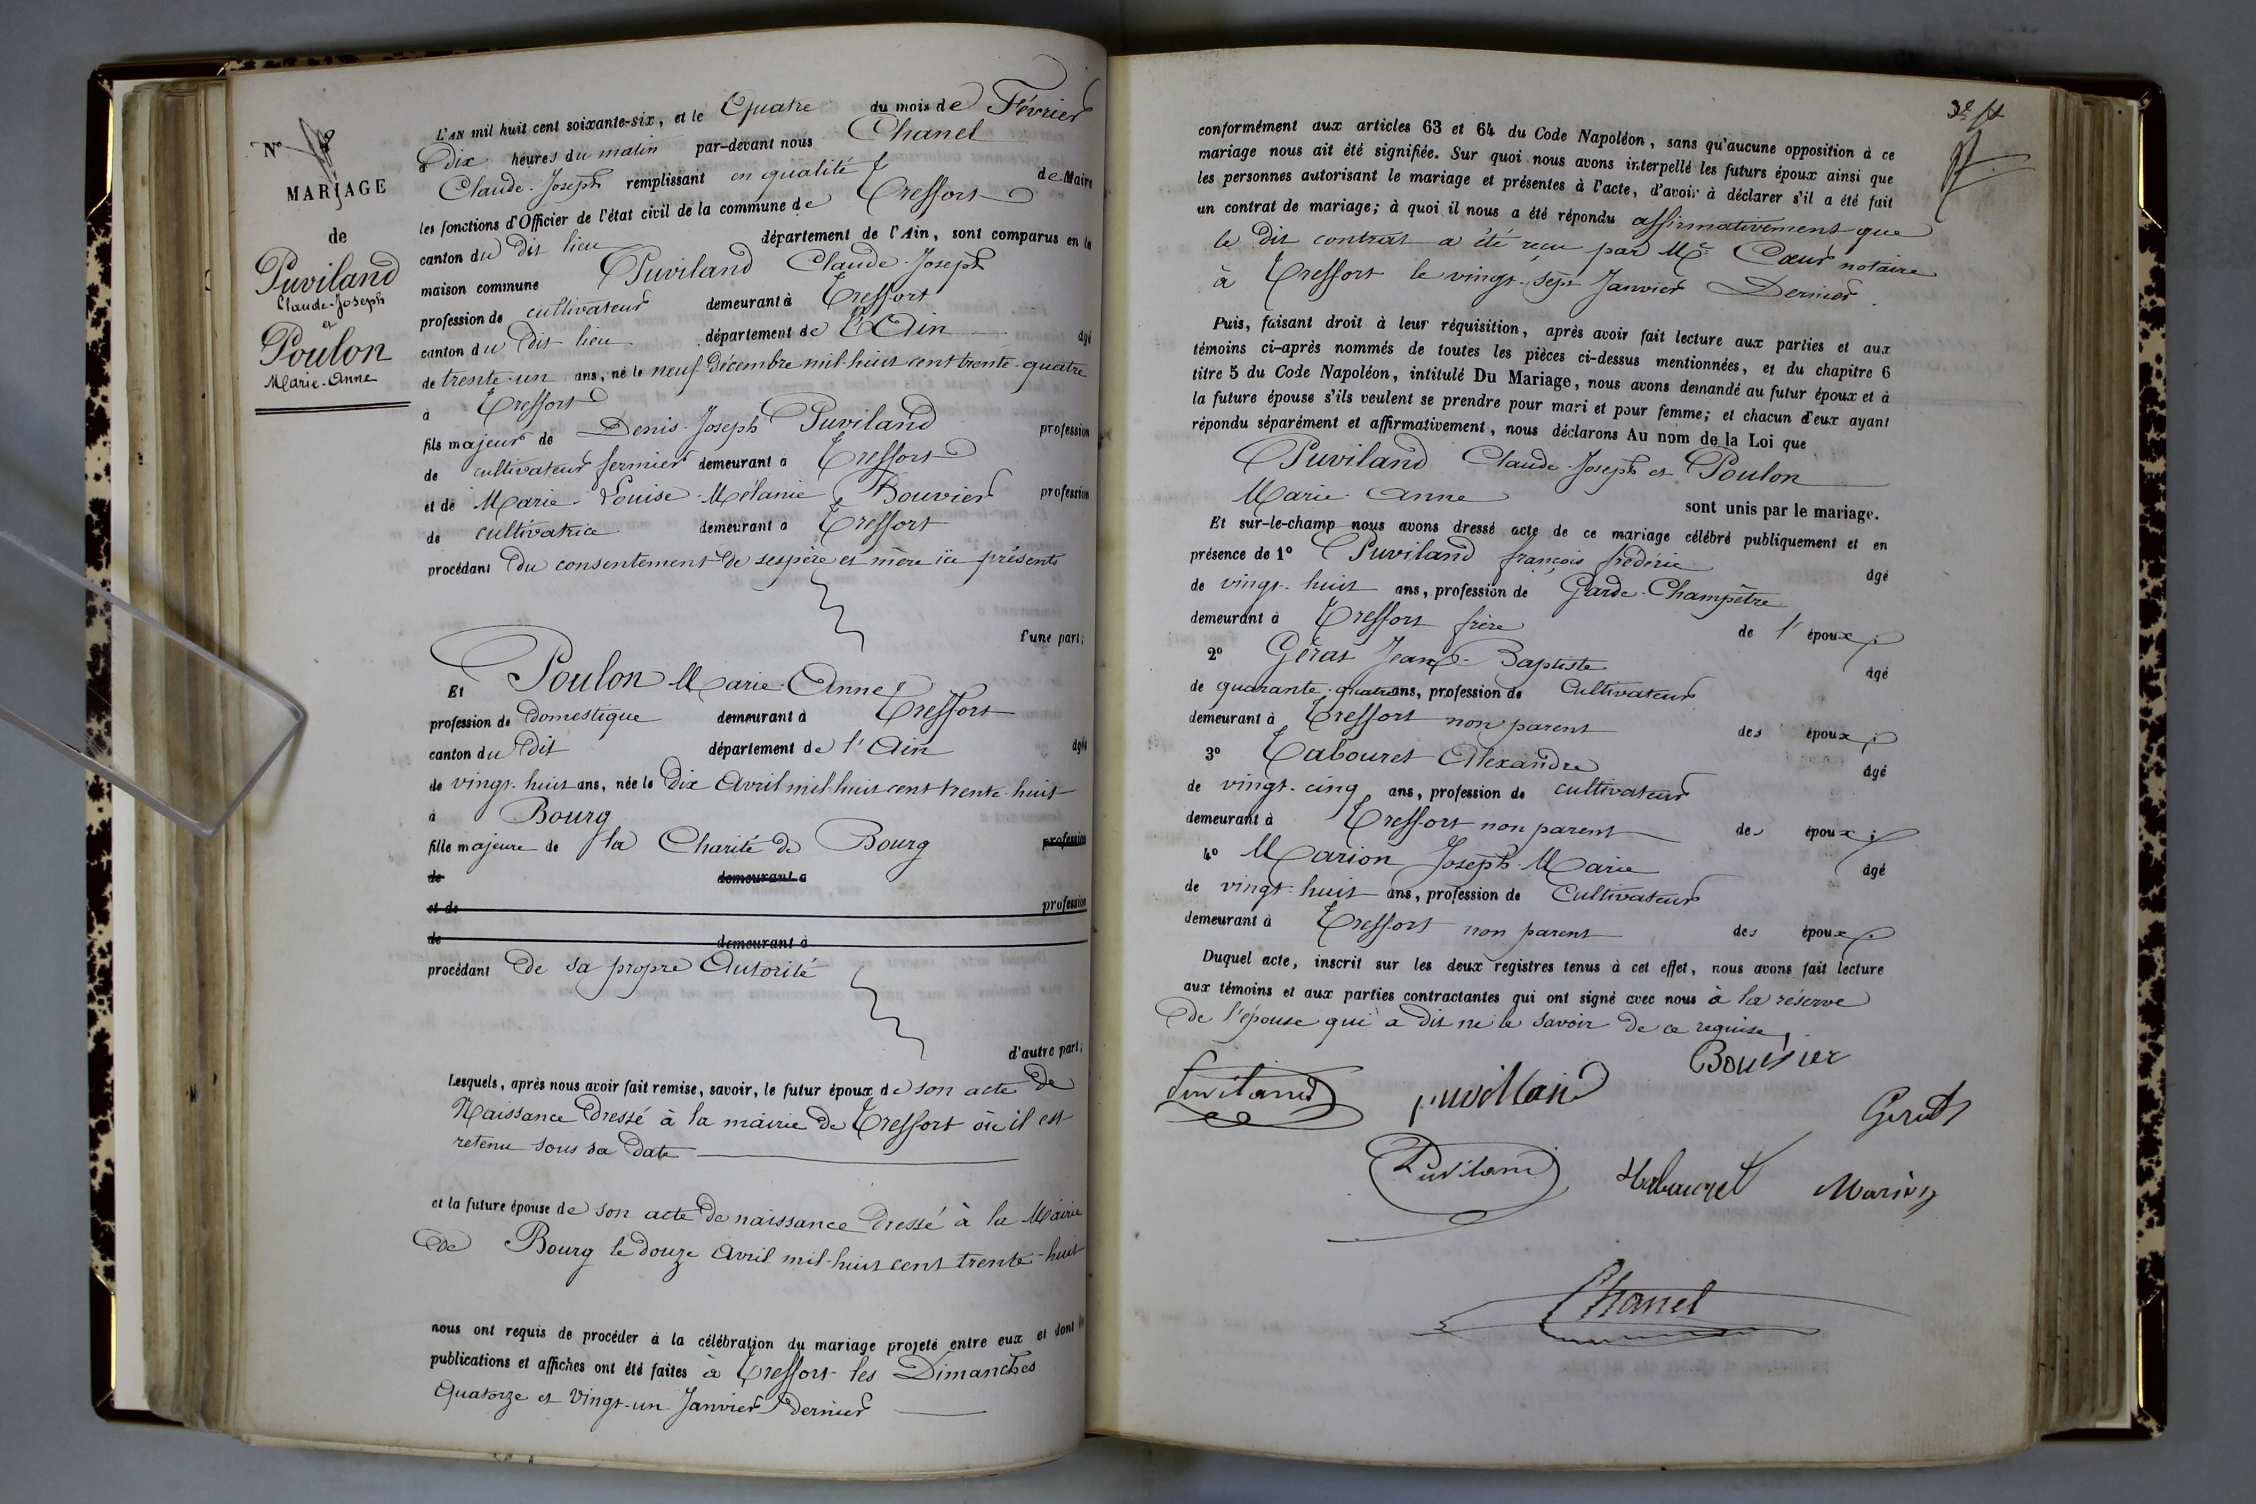 N°
MARIAGE
de
Puviland
Claude-Joseph
et
Poulon
Marie-Anne
L'AN mil huit cent soixante-six, et le Quatre du mois de Février
à Dix heures du matin par-devant nous Chanel
Claude-Joseph remplissant en qualité de Maire
les fonctions d'Officier de l'état civil de la commune de Treffort
canton du dit lieu département de l'Ain, sont comparus en la
maison commune Puviland Claude-Joseph
profession de cultivateur demeurant à Treffort
canton du dit lieu département de l'Ain âgé
de trente-un ans, né le neuf décembre mil-huit cent trente-quatre
à Treffort
fils majeur de Denis-Joseph Puviland profession
de cultivateur fermier demeurant à Treffort
et de Marie-Louise-Mélanie Bouvier profession
de cultivatrice demeurant à Treffort
procédant du consentement de ses père et mère ici présents
d'une part;
Et Poulon Marie-Anne
profession de domestique demeurant à Treffort
canton du dit département de l'Ain âgée
de vingt-huit ans, née le dix Avril mil-huit cent trente-huit
à Bourg
fille majeure de la Charité de Bourg profession
de demeurant à
et de profession
de demeurant à
procédant de sa propre Autorité
d'autre part;
Lesquels, après nous avoir fait remise, savoir, le futur époux de son acte de
Naissance dressé à la mairie de Treffort où il est
retenu sous sa date
et la future épouse de son acte de naissance dressé à la Mairie
de Bourg le douze Avril mil-huit cent trente-huit
nous ont requis de procéder à la célébration du mariage projeté entre eux et dont les
publications et affiches ont été faites à Treffort les Dimanches
quatorze et vingt-un Janvier dernier
32
conformément aux articles 63 et 64 du Code Napoléon, sans qu'aucune opposition à ce
mariage nous ait été signifiée. Sur quoi nous avons interpellé les futurs époux ainsi que
les personnes autorisant le mariage et présentes à l'acte, d'avoir à déclarer s'il a été fait
un contrat de mariage; à quoi il nous a été répondu affirmativement que
le dit contrat a été reçu par Me Cœur notaire
à Treffort le vingt-sept Janvier dernier.
Puis, faisant droit à leur réquisition, après avoir fait lecture aux parties et aux
témoins ci-après nommés de toutes les pièces ci-dessus mentionnées, et du chapitre 6
titre 5 du Code Napoléon, intitulé Du Mariage, nous avons demandé au futur époux et à
la future épouse s'ils veulent se prendre pour mari et pour femme; et chacun d'eux ayant
répondu séparément et affirmativement, nous déclarons Au nom de la Loi que
Puviland Claude-Joseph et Poulon
Marie-Anne sont unis par le mariage.
Et sur-le-champ nous avons dressé acte de ce mariage célébré publiquement et en
présence de 1° Puviland françois frédéric âgé
de vingt-huit ans, profession de Garde-Champêtre
demeurant à Treffort frère de l'époux;
2° Géras Jean-Baptiste âgé
de quarante-quatre ans, profession de Cultivateur
demeurant à Treffort non parent des époux;
3° Tabouret Alexandre âgé
de vingt-cinq ans, profession de cultivateur
demeurant à Treffort non parent des époux;
4° Marion Joseph-Marie âgé
de vingt-huit ans, profession de Cultivateur
demeurant à Treffort non parent des époux.
Duquel acte, inscrit sur les deux registres tenus à cet effet, nous avons fait lecture
aux témoins et aux parties contractantes qui ont signé avec nous à la réserve
de l'épouse qui a dit ne le savoir de ce requise.
Puviland puvilland Bouvier
Puviland Tabouret Marion
Chanel